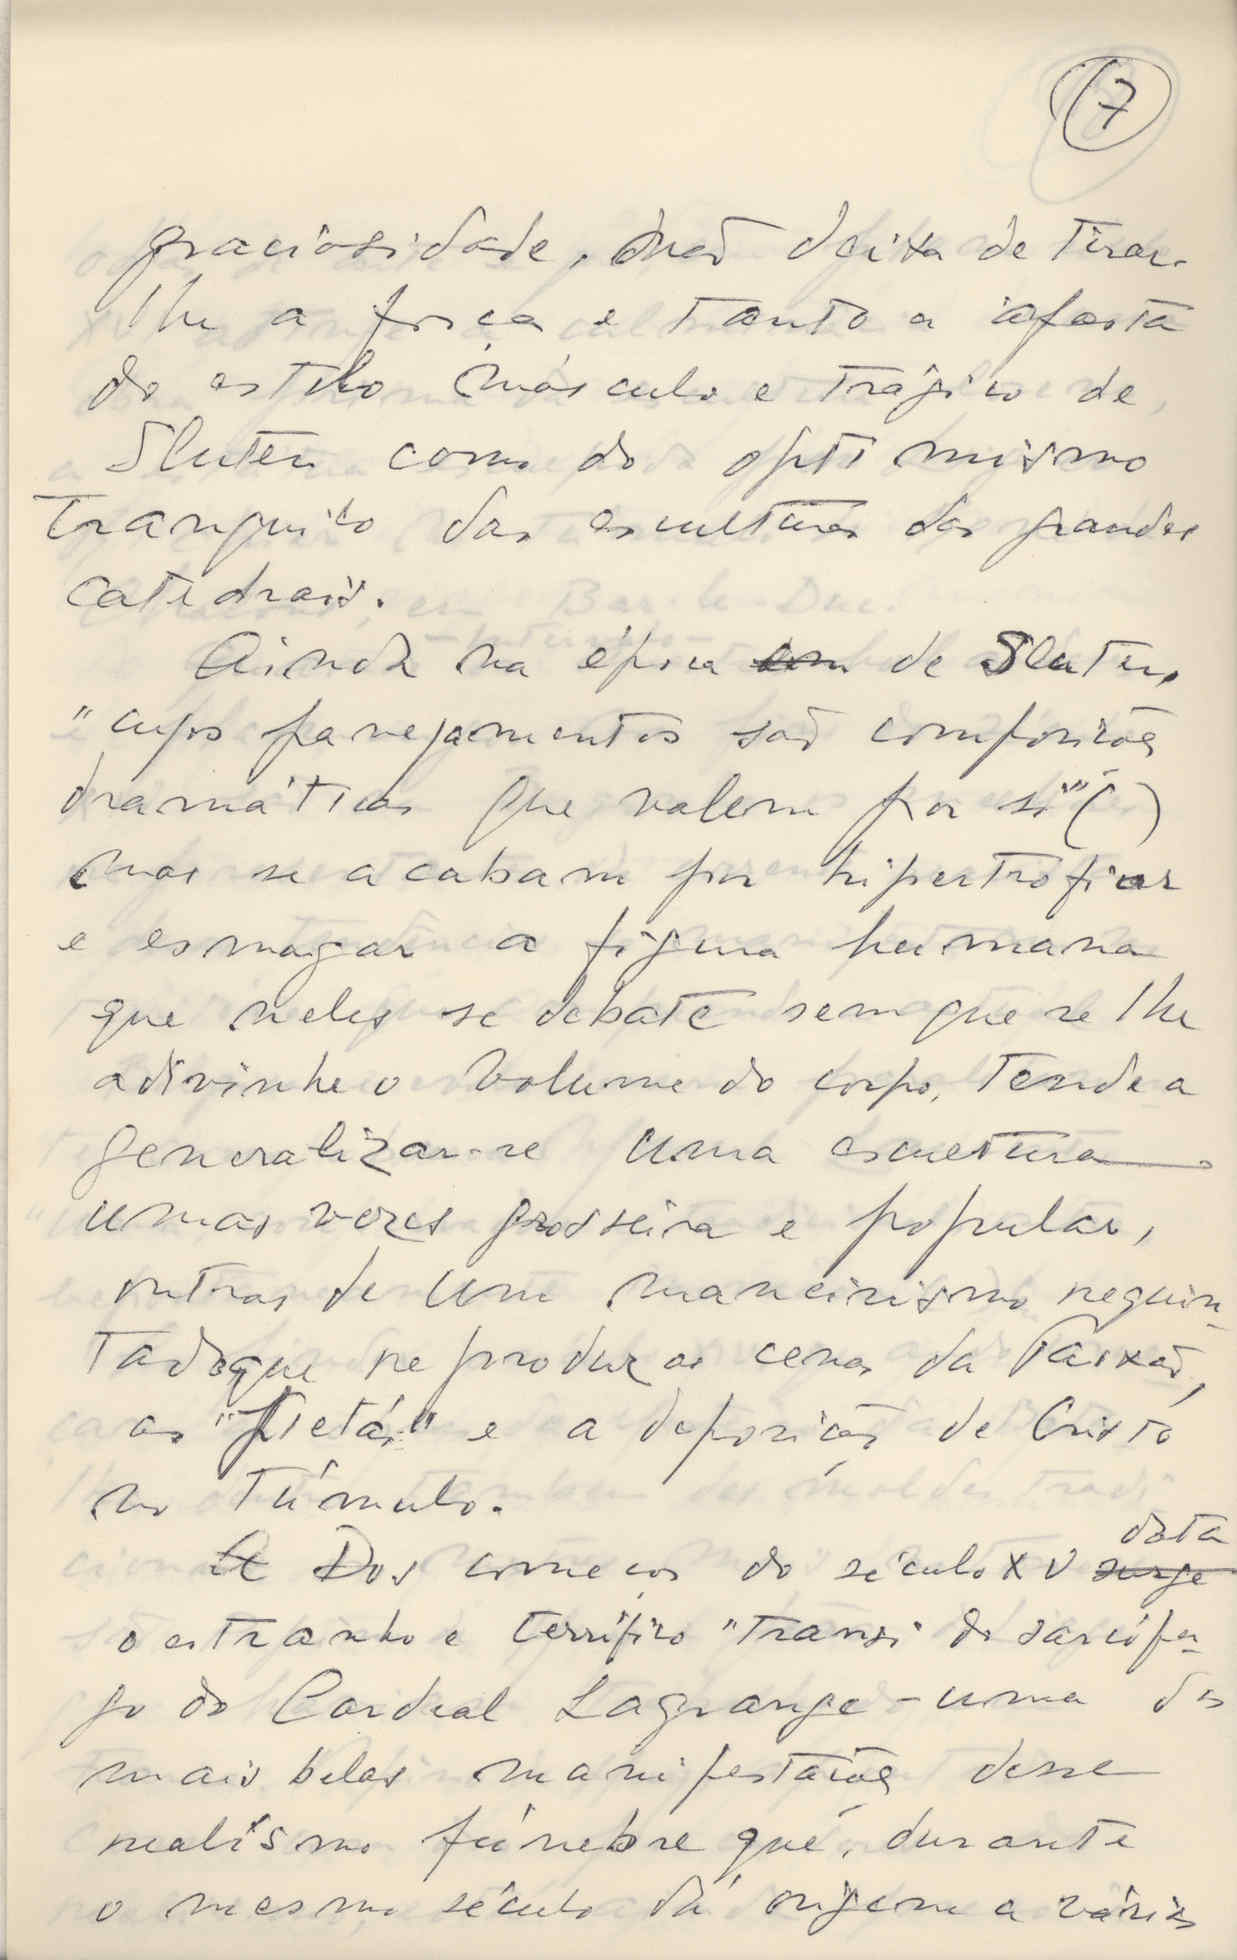 7
graciosidade, não deixa de tirar-
lhe a força e tanto a afasta
do estilo másculo e trágico de
Sluter como do optimismo
tranquilo das esculturas das grandes
catedrais.
Ainda na época em de Sluter,
"cujos panejamentos são composições
dramáticas que valem por si" ( )
mas se acabam por hipertrofiar
e esmagar a figura humana
que neles se debate sem que se lhe
adivinhe o volume do corpo, tende a
generalizar-se uma escultura
umas vezes grosseira e popular,
outras de um maneirismo requin-
tado que reproduz as cenas da Paixão,
as "Pietás" e a deposição de Cristo
no túmulo.
A Dos começos do século XV surge data
o estranho e terrífico "transi" do sarcófa-
go do Cardeal Lagrange - uma das
mais belas manifestações desse
realismo fúnebre que, durante
o mesmo século dá origem a várias